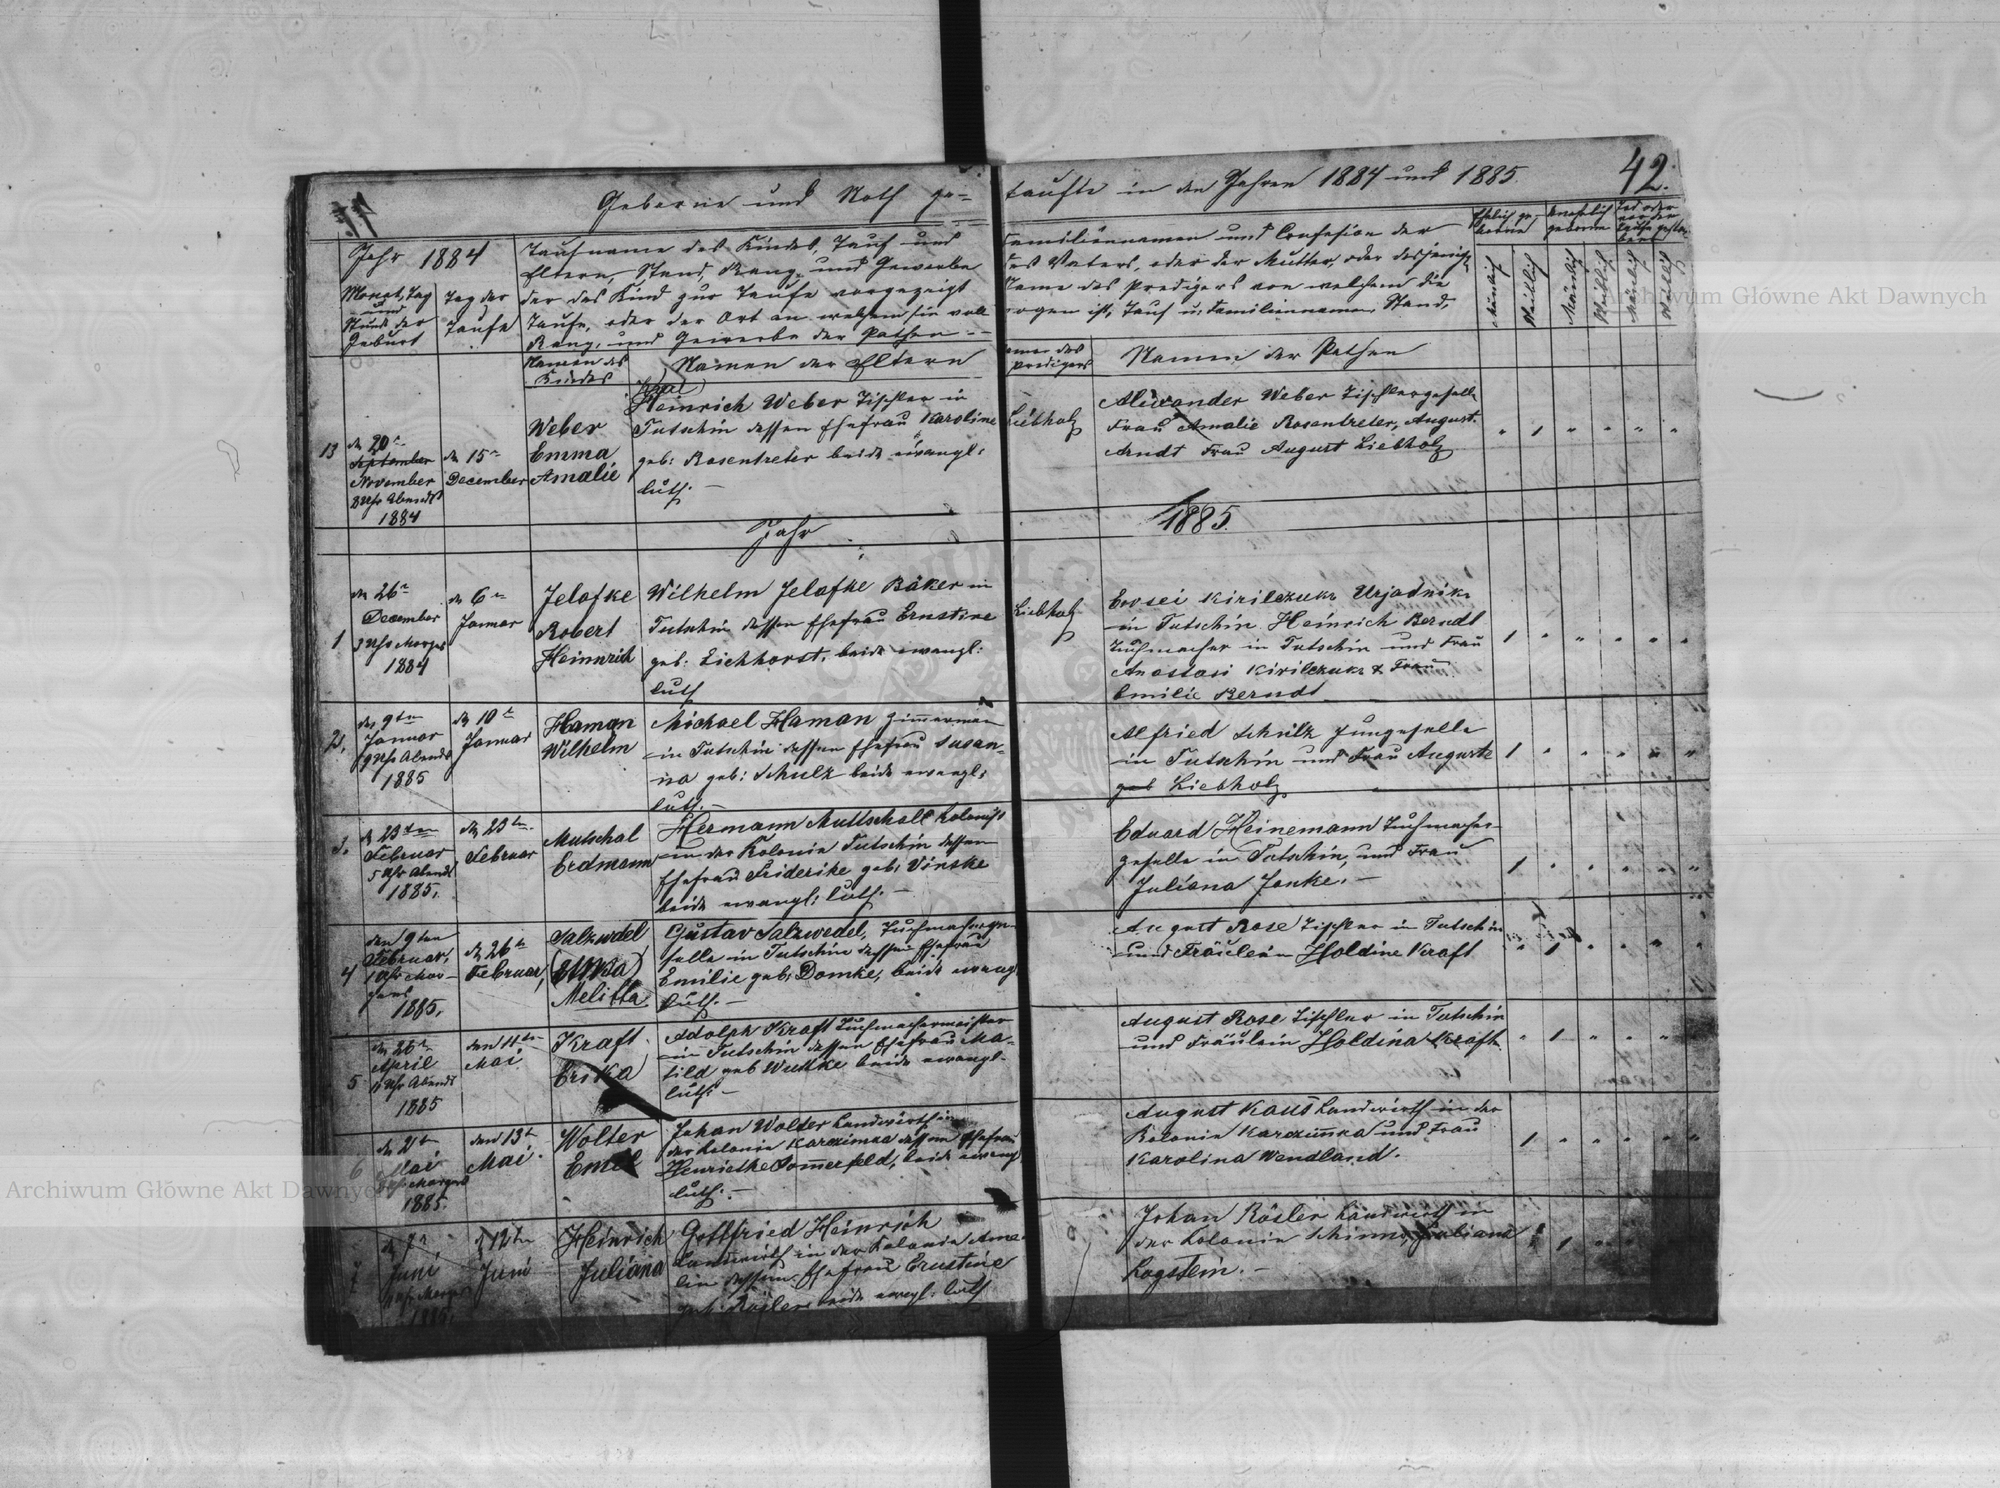 Geborne und Noth ge-
taufte in den Jahren 1884 und 1885
42.
Jahr 1884
Monat, Tag
und
Stunde der
Geburt
Tag der
Taufe
Taufname des Kindes, Tauf und
Eltern, Stand, Rang und Gewerbe
der das Kind zur Taufe vorgezeigt
Taufe, oder der Ort an welchem sie voll
Rang, und Gewerbe der Pathen
Familiennamen und Confesion der
des Vaters, oder der Mutter, oder desjenig
Name des Predigers von welchem die
zogen ist, Tauf u. Familiennamen, Stand,
Ehlich ge-
borene
Unehelich
geborene
Tod oder
vor der
Taufe gestor-
ben
Mänlich
Weiblich
Mänlich
Weiblich
Mänlich
Weiblich
Namen des
Kindes
Namen der Eltern
Namen des
Predigers
Namen der Pathen
13
den 20n
September
November
8 Uhr Abends
1884
den 15n
December
Weber
Emma
Amalie
Heinrich Weber Tischler in
Tutschin dessen Ehefrau Karoline
geb: Rosentreter beide evangl:
luth.
Liebholz
Alexander Weber Tischlergeselle
Frau Amalie Rosentreter, August
Arndt Frau August Liebholz
Jahr
1885.
1
den 26n
December
3 Uhr Morgs
1884
den 6n
Januar
Jelafke
Robert
Heinrich
Wilhelm Jelafke Bäker in
Tutschin dessen Ehefrau Ernstine
geb: Eichhorst, beide evangl:
luth
Liebholz
Evsei Kirilczuk Urjadnik
in Tutschin Heinrich Berndt
Tuchmacher in Tutschin und Frau
Anastasi Kirilczuk & Frau
Emilie Berndt
2.
den 9ten
Januar
9 Uhr Abends
1885
den 10n
Januar
Haman
Wilhelm
Michael Haman Zimmerman
in Tutschin dessen Ehefrau Susan-
na geb: Schulz beide evangl:
luth.
Alfried Schulz Jungeselle
in Tutschin und Frau Auguste
geb Liebholz
3.
den 23ten
Februar
5 Uhr Abends
1885.
den 23ten
Februar
Mutschal
Erdmann
Hermann Muttschall Kolonist
in der Kolonie Tutschin dessen
Ehefrau Friderike geb: Vinske
beide evangl: luth.
Eduard Heinemann Tuchmacher-
geselle in Tutschin, und Frau
Juliana Janke.
4
den 9ten
Februar,
1 Uhr Mor-
gens
1885.
den 26ten
Februar,
Salzwedel
(Erika)
Melitta
Gustav Salzwedel, Tuchmacherge-
selle in Tutschin dessen Ehefrau
Emilie geb: Domke, beide evangl
luth.
August Rose Tischler in Tutschin
und Fräulein Holdine Kraft
5
den 26n
April
11 Uhr Abends
1885
den 11ten
Mai
Kraft
Erika
Adolph Kraft Tuchmachermeister
in Tutschin dessen Ehefrau Ma-
tild geb Wuttke beide evangl-
luth.
August Rose Tischler in Tutschin
und Fräulein Holdina Kraft
6
Mai
1885.
den 13n
Mai.
Wolter
Emil
Johan Wolter Landwirth in
der Kolonie Karczimka dessen Ehefrau
Henriethe Sommerfeld, beide evangl
luth.
August Kaus Landwirth in der
Kolonie Karczimka und Frau
Karolina Wendland.
7
den 7n
Juni
1885.
d. 12ten
Juni
Heinrich
Juliana
Gottfried Heinrich
Landwirth in der Kolonie Ama-
lin dessen Ehefrau Ernstine
geb. Rösler beide evangl: luth
Johan Rösler Landwirth in
der Kolonie Juliana
Logstein.
Archiwum Główne Akt Dawnych
Archiwum Główne Akt Dawnych